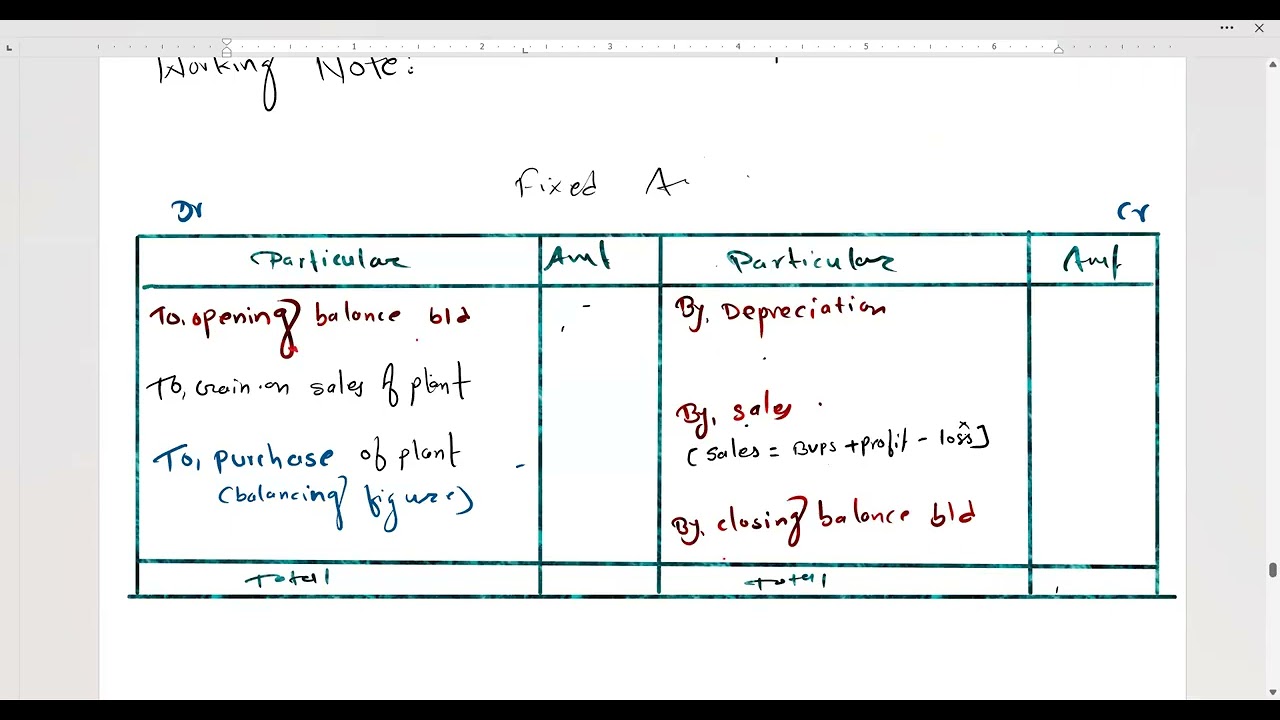 Working Note:
Fixed A
Dr Cr
Particular Amt Particular Amt
To, opening balance b/d By, Depreciation
To, Gain on sales of plant
By, sales
(Sales = BVPS + profit - loss]
To, purchase of plant
(balancing figure)
By, closing balance b/d
Total Total